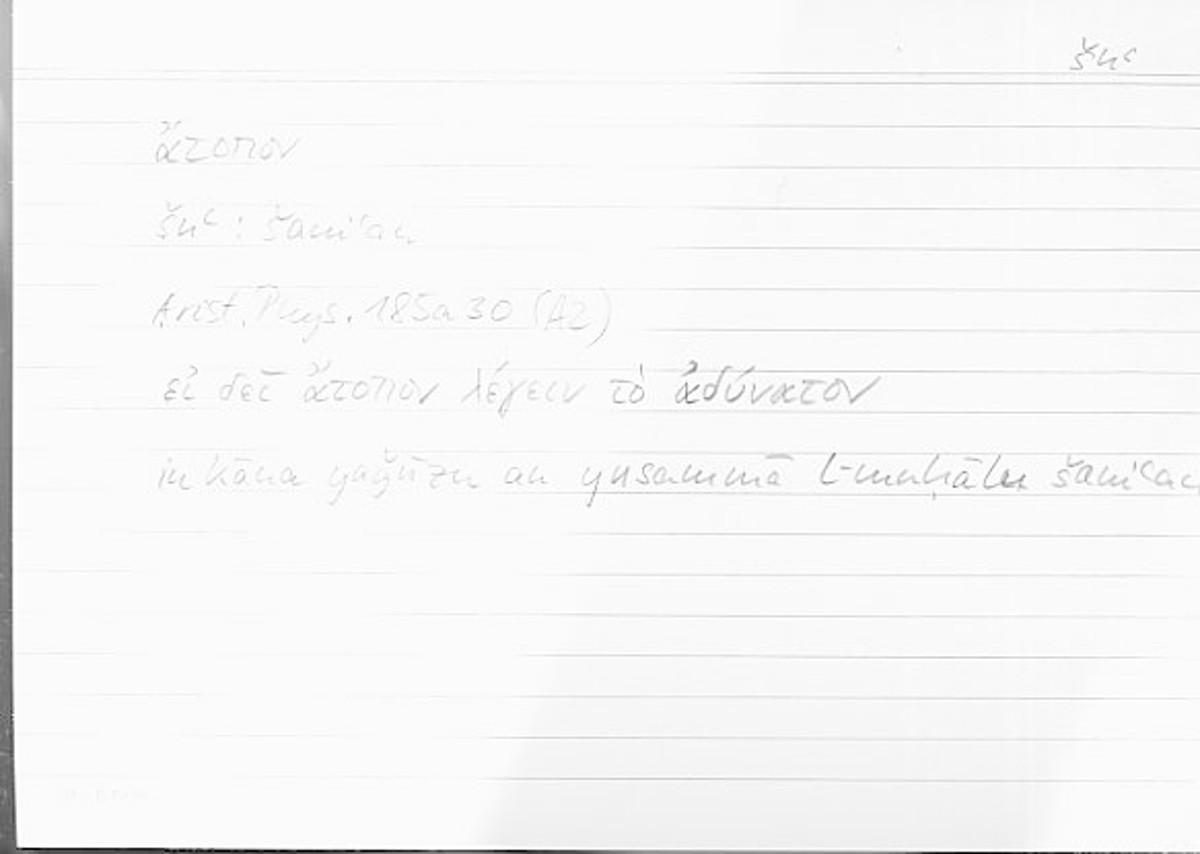 šnʿ
ἄτοπον
šnʿ : šaniʿan
Arist. Phys. 185a30 (A2)
εἰ δεῖ ἄτοπον λέγειν τὸ ἀδύνατον
in kāna yaǧūzu an yusammā l-muḥālu šaniʿan